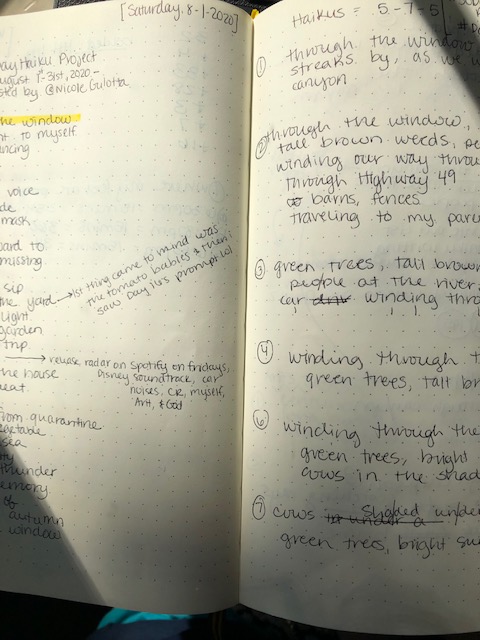 [Saturday, 8-1-2020]
Day Haiku Project
August 1st-31st, 2020-
sted by @Nicole Gulotta
the window
nt to myself
ncing
voice
de
mask
ward to
missing
sip
the yard → 1st thing came to mind was
the tomato babies & then i
saw Day 16's prompt lol
light
garden
trip
→ release radar on Spotify on fridays,
the house Disney soundtrack, car
eat noises, CR, myself,
Art, & God
from quarantine
table
sea
ty
thunder
emory
of
autumn
window
Haikus = 5-7-5
① through the window
streaks by, as we w
canyon
② through the window,
tall brown weeds,
winding our way throu
through Highway 49
barns, fences
traveling to my pare
③ green trees, tall brown
people at the river,
car driv winding thro
④ winding through t
green trees, tall br
⑥ winding through the
green trees, bright
cows in the shad
⑦ cows in under a shaded under
green trees, bright su